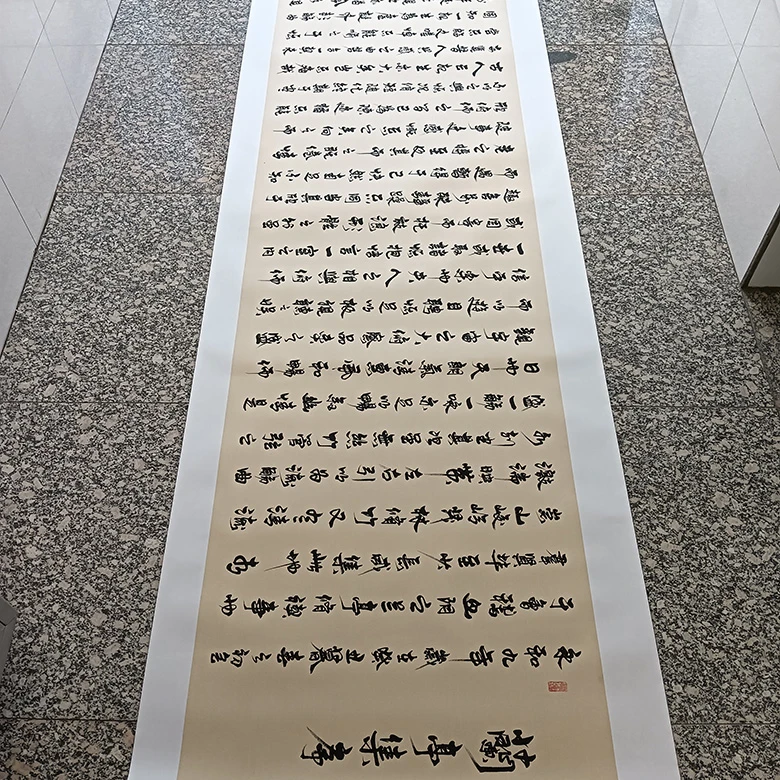 蘭亭集序
永和九年歲在癸丑暮春之初會
于會稽山陰之蘭亭脩禊事也
群賢畢至少長咸集此地有
崇山峻嶺茂林脩竹又有清流
激湍映帶左右引以為流觴曲
水列坐其次雖無絲竹管絃之
盛一觴一詠亦足以暢敘幽情是
日也天朗氣清惠風和暢仰
觀宇宙之大俯察品類之盛
所以遊目騁懷足以極視聽之娛
信可樂也夫人之相與俯仰
一世或取諸懷抱悟言一室之內
或因寄所託放浪形骸之外雖
趣舍萬殊靜躁不同當其欣於
所遇暫得於己快然自足不知
老之將至及其所之既倦情
隨事遷感慨係之矣向之所
欣俛仰之間已為陳迹猶不能
不以之興懷況脩短隨化終期於盡
古人云死生亦大矣豈不痛哉
每覽昔人興感之由若合一契未
嘗不臨文嗟悼不能喻之於懷
固知一死生為虛誕齊彭殤為